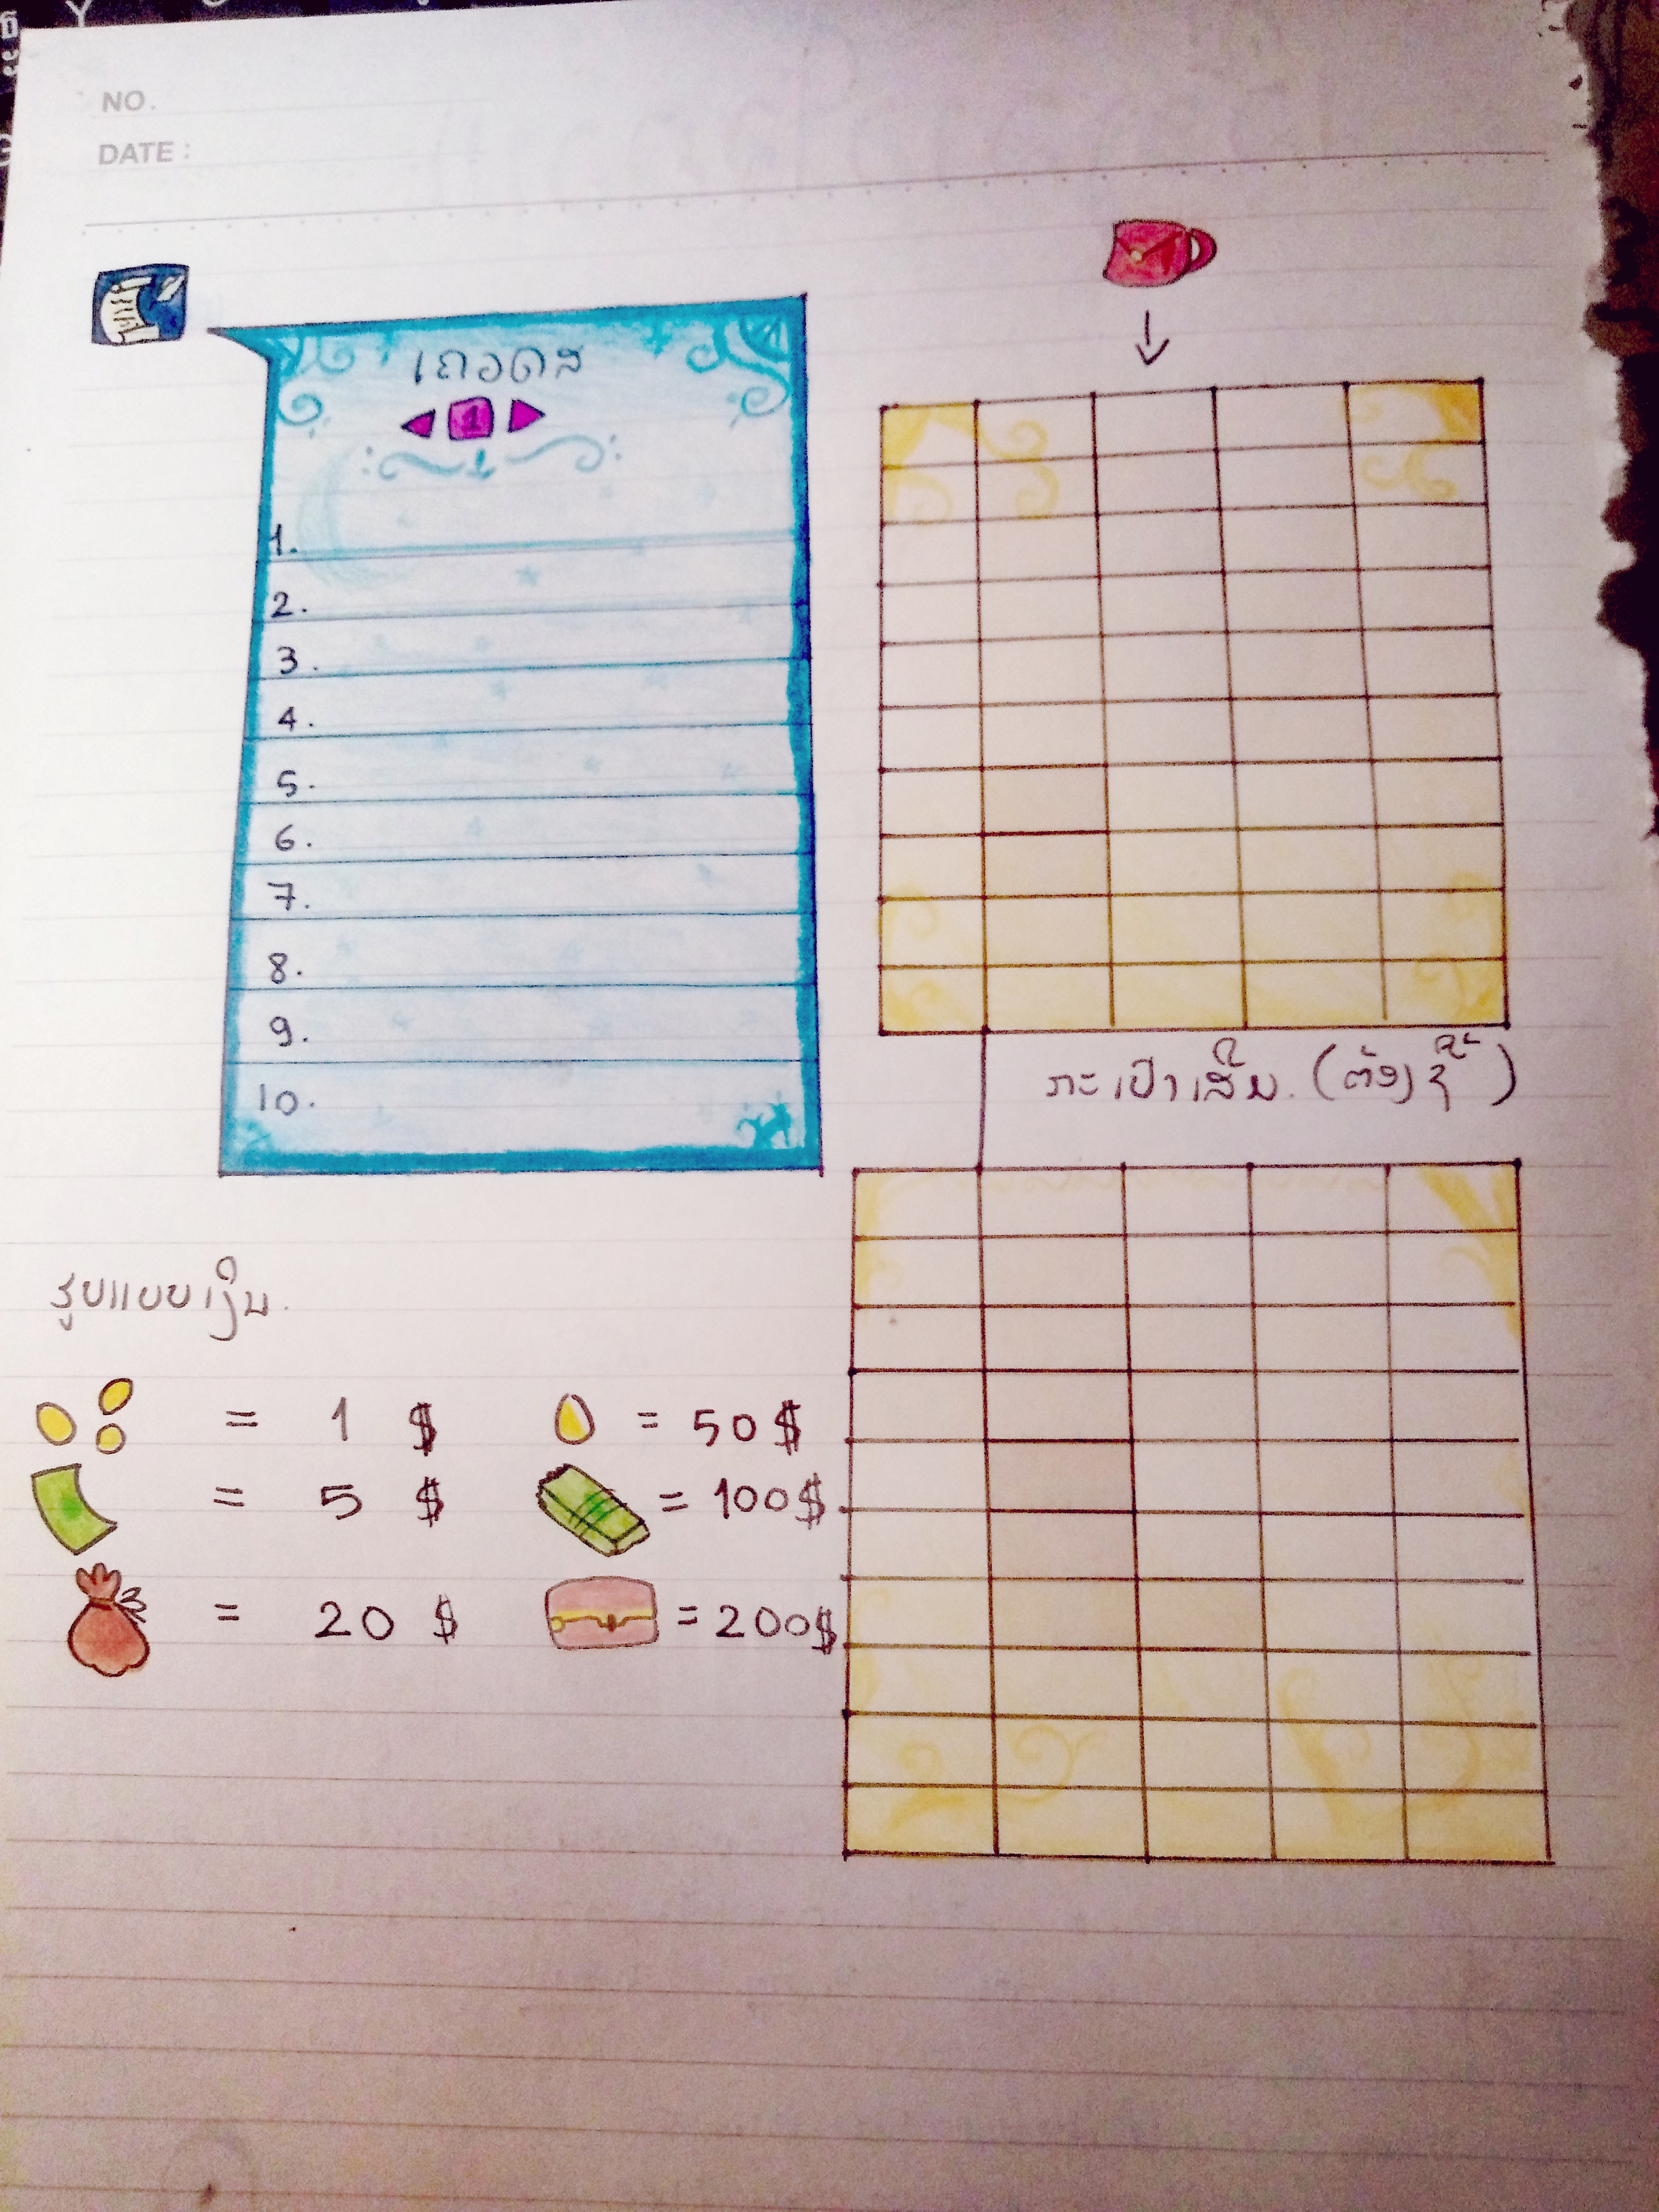 NO.
DATE :
ເຄວດສ
1
1.
2.
3.
4.
5.
6.
7.
8.
9.
10.
ກະເປົາເສີມ. (ຕ້ອງຊື້)
ຮູບແບບເງິນ.
= 1 $
= 50 $
= 5 $
= 100 $
= 20 $
= 200 $